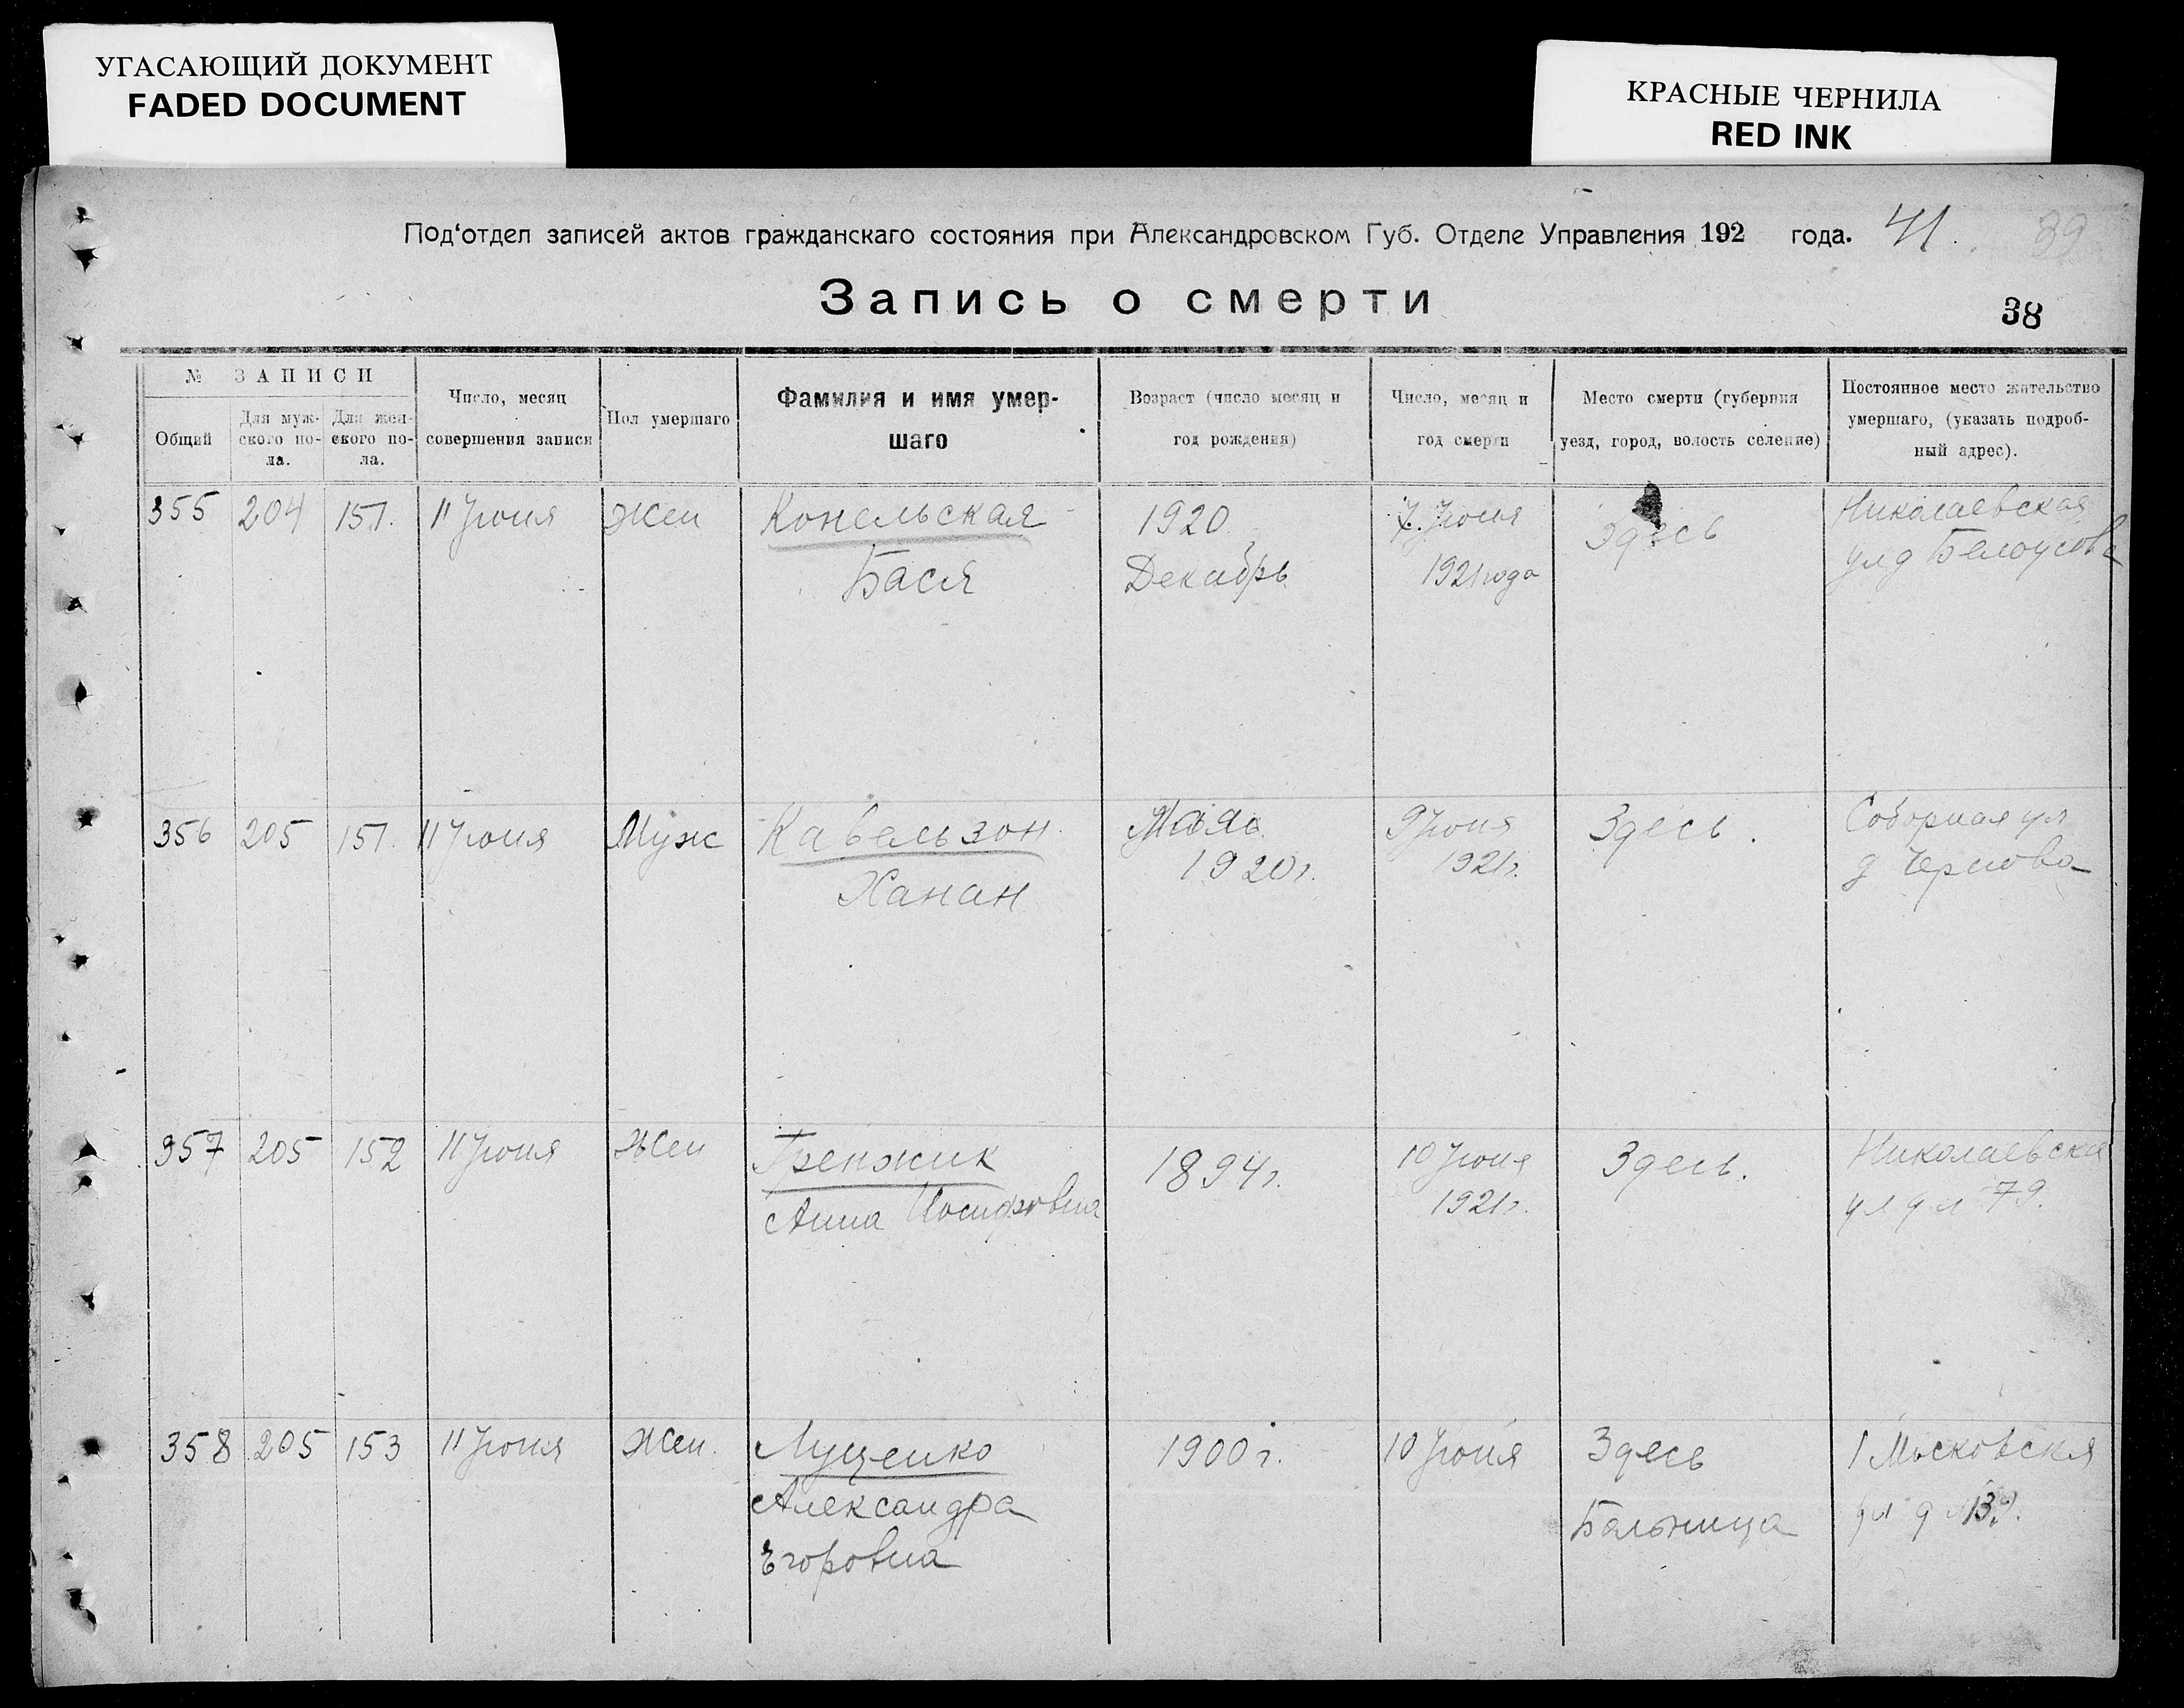 УГАСАЮЩИЙ ДОКУМЕНТ
FADED DOCUMENT
КРАСНЫЕ ЧЕРНИЛА
RED INK
Под'отдел записей актов гражданскаго состояния при Александровском Губ. Отделе Управления 192 года. 41. 39
Запись о смерти
38
№ ЗАПИСИ
Общий
Для муж-
ского по-
ла.
Для жен-
ского по-
ла.
Число, месяц
совершения записи
Пол умершаго
Фамилия и имя умер-
шаго
Возраст (число месяц и
год рождения)
Число, месяц и
год смерти
Место смерти (губерния
уезд, город, волость селение)
Постоянное место жительство
умершаго, (указать подроб-
ный адрес).
355 204 151. 11 Июня Жен Конельская 1920 7 Июня Здесь Николаевская
Бася Декабрь 1921 года ул д Белоусова
356 205 151. 11 Июня Муж Кавельзон 9 Июня Здесь. Соборная ул
Ханан 1920 г. 1921 г. д Чернова
357 205 152 11 Июня Жен Гренжик 1894 г. 10 Июня Здесь. Николаевская
Анна Иосифовна 1921 г. ул д № 79.
358 205 153 11 Июня Жен. Луценко 1900 г. 10 Июня Здесь 1 Московская
Александра Больница ул д
Егоровна